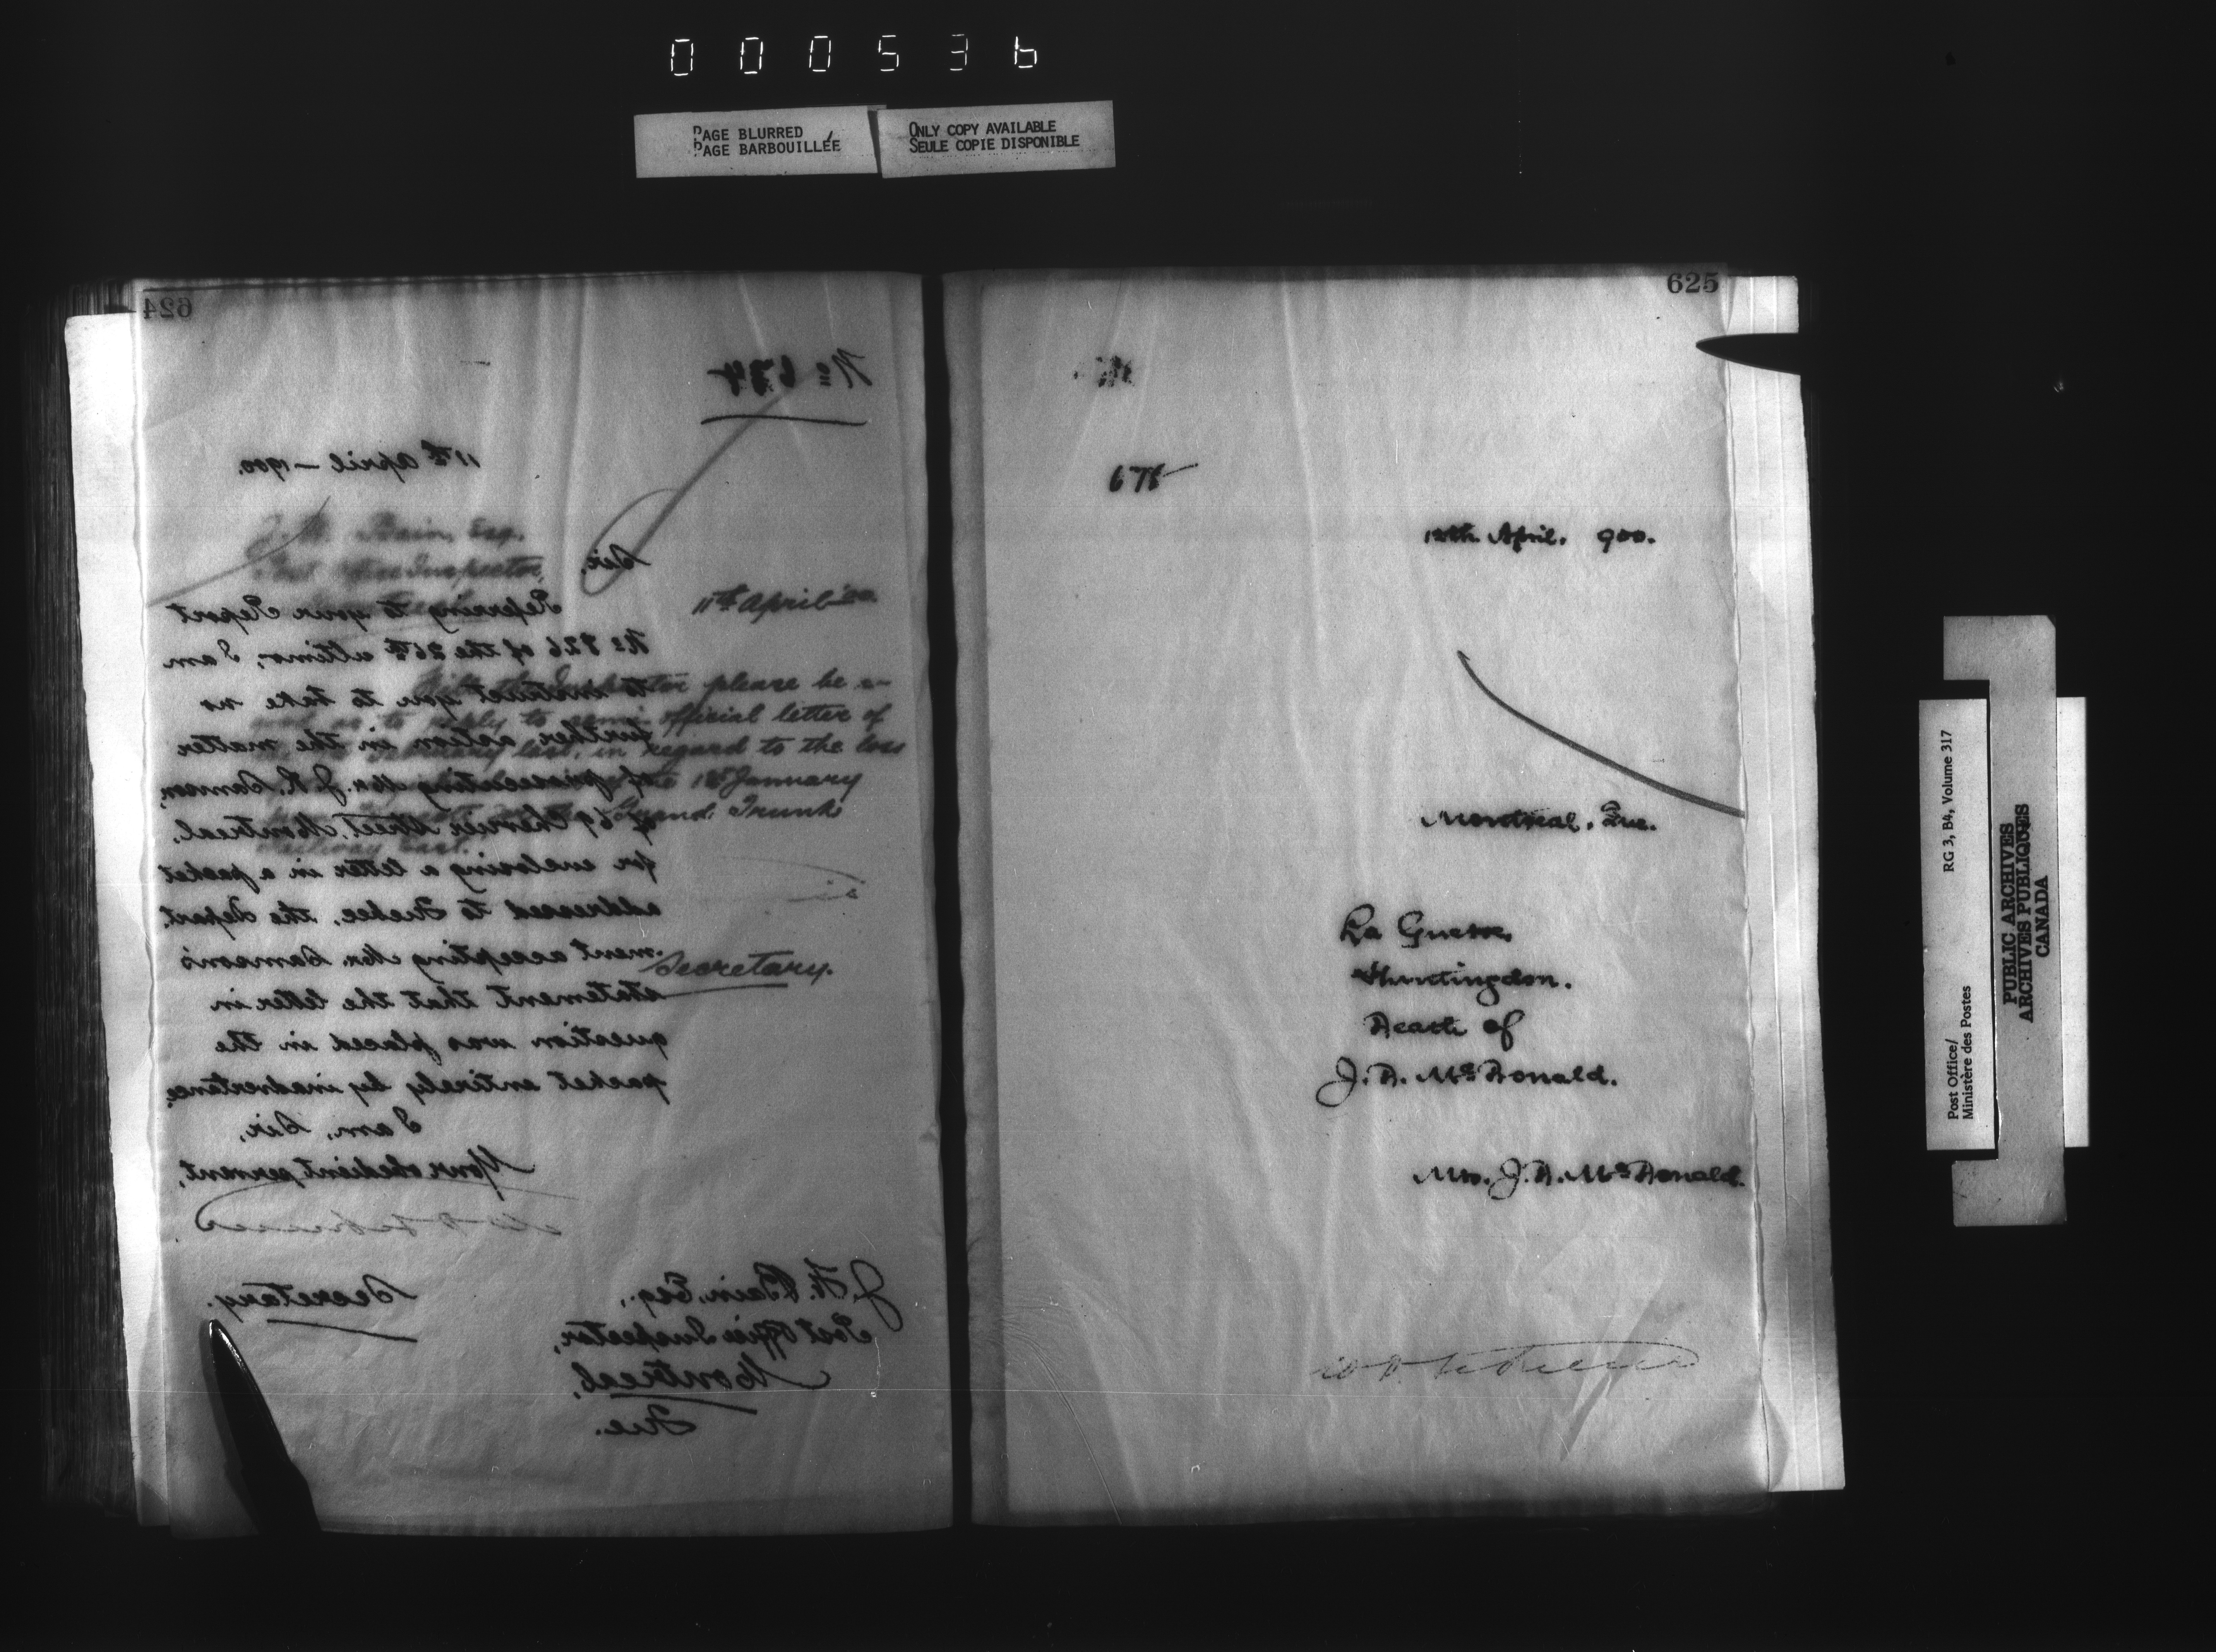 000536
PAGE BLURRED
PAGE BARBOUILLÉE
ONLY COPY AVAILABLE
SEULE COPIE DISPONIBLE
624
No 674
11th April – 1900.
Sir,
Referring to your Report
No 826 of the 26th ultimo, I am
to instruct you to take no
further action in the matter
of prosecuting Mr. J. R. Samson,
of 69 Cherrier Street, Montreal,
for enclosing a letter in a packet
addressed to Quebec, the Depart-
ment accepting Mr. Samson's
statement that the letter in
question was placed in the
packet entirely by inadvertence.
I am, Sir,
Your obedient servant,
Secretary.
J. H. Bain, Esq.,
Post Office Inspector,
Montreal,
Que.
Bain, Esq.
Post Office Inspector,
11th April
please be so
good as to reply to semi-official letter of
last, in regard to the loss
1st January
Grand Trunk
Railway East.
Secretary.
625
675
12th April, 900.
Montreal, Que.
La Guerre,
Huntingdon.
Death of
J. D. McDonald.
Mrs. J. D. McDonald.
Post Office/
Ministère des Postes
RG 3, B4, Volume 317
PUBLIC ARCHIVES
ARCHIVES PUBLIQUES
CANADA